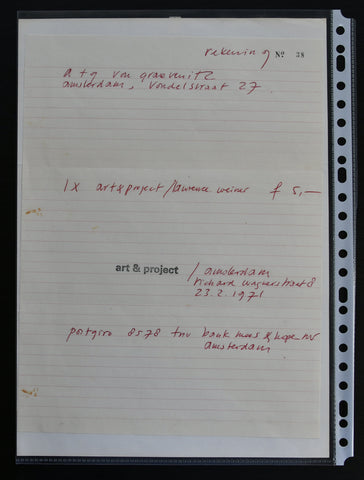 rekening Nº 38
a + g von graevenitz
amsterdam, vondelstraat 27
1x art & project/lawrence weiner f 5,—
art & project / amsterdam
richard wagnerstraat 8
23.2.1971
postgiro 8578 tnv bank mees & hope nv
amsterdam